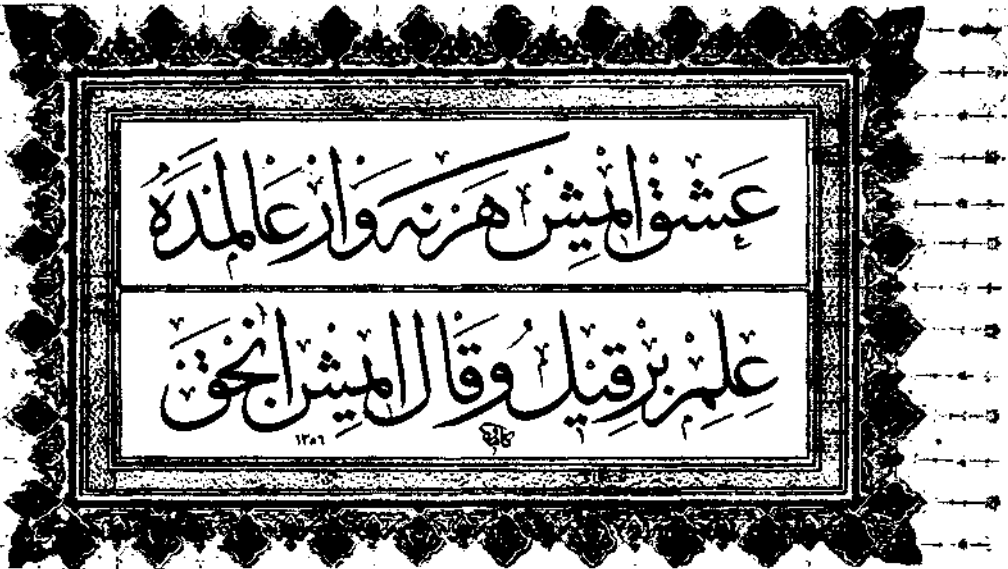 عشق ايمش هرنه وار عالمده
علم بر قيل و قال ايمش انجق
١٣٥٦